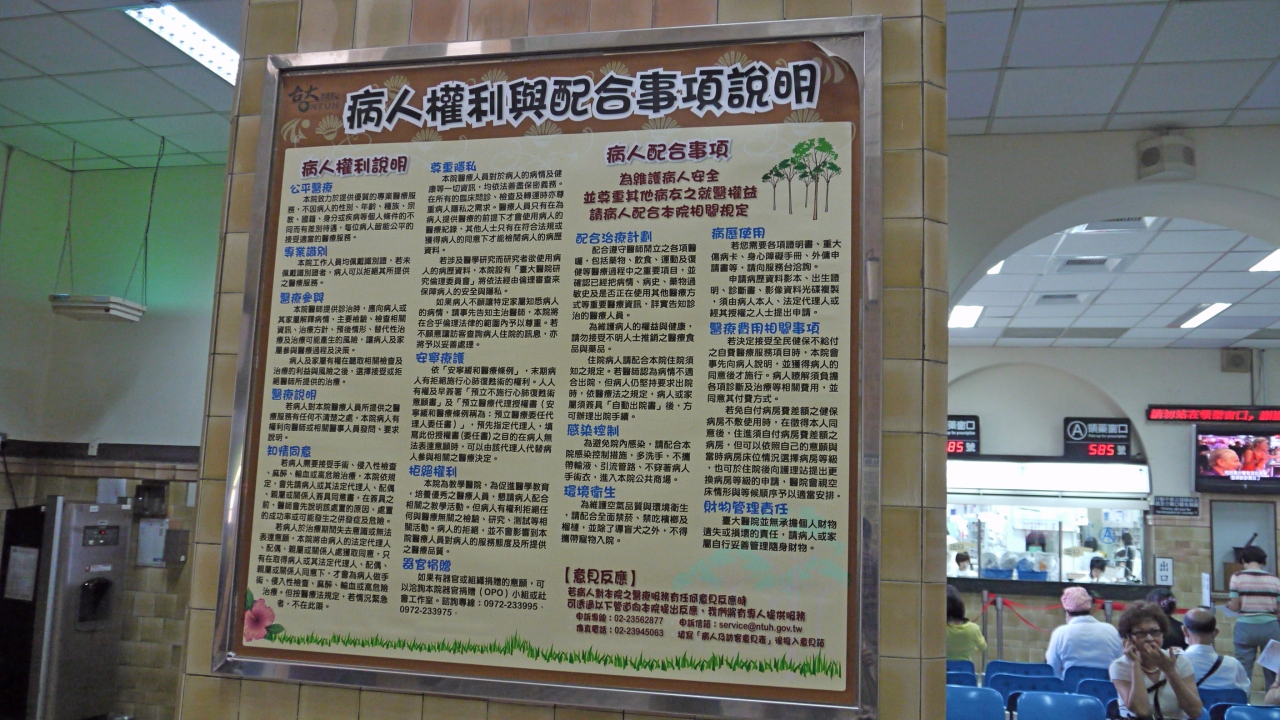 台大醫院
NTUH
病人權利與配合事項說明
病人權利說明
公平醫療
本院致力於提供優質的專業醫療服
務，不因病人的性別、年齡、種族、宗
教、國籍、身分或疾病等個人條件的不
同而有差別待遇，每位病人皆能公平的
接受適當的醫療服務。
專業識別
本院工作人員均佩戴識別證，若未
佩戴識別證者，病人可以拒絕其所提供
之醫療服務。
醫療參與
本院醫師提供診治時，應向病人或
其家屬解釋病情、主要檢驗、檢查相關
資訊、治療方針，預後情形、替代性治
療及治療可能產生的風險，讓病人及家
屬參與醫療過程及決策。
病人及家屬有權在聽取相關檢查及
治療的利益與風險之後，選擇接受或拒
絕醫師所提供的治療。
醫療說明
若病人對本院醫療人員所提供之醫
療服務有任何不清楚之處，本院病人有
權利向醫師或相關醫事人員發問、要求
說明。
知情同意
若病人需要接受手術、侵入性檢查
、麻醉、輸血或高危險治療，本院依規
定，會先請病人或其法定代理人、配偶
、親屬或關係人簽具同意書，在簽具之
前，醫師會先說明該處置的原因、處置
的成功率或可能發生之併發症及危險。
若病人於治療期間失去意識或無法
表達意願，本院將由病人的法定代理人
、配偶、親屬或關係人處獲取同意，只
有在取得病人或其法定代理人、配偶、
親屬或關係人同意下，才會為病人做手
術、侵入性檢查、麻醉、輸血或高危險
治療。但按醫療法規定，若情況緊急
者，不在此限。
尊重隱私
本院醫療人員對於病人的病情及健
康等一切資訊，均依法善盡保密義務。
在所有的臨床問診、檢查及轉運時亦尊
重病人隱私之需求。醫療人員只有在為
病人提供醫療的前提下才會使用病人的
醫療紀錄，其他人士只有在符合法規或
獲得病人的同意下才能檢閱病人的病歷
資料。
若涉及醫學研究而研究者欲使用病
人的病歷資料，本院設有「臺大醫院研
究倫理委員會」將依法經由倫理審查來
保障病人的安全與隱私。
如果病人不願讓特定家屬知悉病人
的病情，請事先告知主治醫師，本院將
在合乎倫理法律的範圍內予以尊重。若
不願意讓訪客查詢病人住院的訊息，亦
將予以妥善處理。
安寧療護
依「安寧緩和醫療條例」，末期病
人有拒絕施行心肺復甦術的權利。人人
有權及早簽署「預立不施行心肺復甦術
意願書」及「預立醫療代理授權書（安
寧緩和醫療條例稱為：預立醫療委任代
理人委任書）」，預先指定代理人，填
寫此份授權書(委任書)之目的在病人無
法表達意願時，可以由該代理人代替病
人參與相關之醫療決定。
拒絕權利
本院為教學醫院，為促進醫學教育
，培養優秀之醫療人員，懇請病人配合
相關之教學活動。但病人有權利拒絕任
何與醫療無關之檢驗、研究、測試等相
關活動。病人的拒絕，並不會影響到本
院醫療人員對病人的服務態度及所提供
之醫療品質。
器官捐贈
如果有器官或組織捐贈的意願，可
以洽詢本院器官捐贈（OPO）小組或社
會工作室。諮詢專線：0972-233995，
0972-233975。
病人配合事項
為維護病人安全
並尊重其他病友之就醫權益
請病人配合本院相關規定
配合治療計劃
配合遵守醫師開立之各項醫
囑，包括藥物、飲食、運動及復
健等醫療過程中之重要項目，並
確認已經把病情、病史、藥物過
敏史及是否正在使用其他醫療方
式等重要醫療資訊，詳實告知診
治的醫療人員。
為維護病人的權益與健康，
請勿接受不明人士推銷之醫療食
品與藥品。
住院病人請配合本院住院須
知之規定。若醫師認為病情不適
合出院，但病人仍堅持要求出院
時，依醫療法之規定，病人或家
屬須簽具「自動出院書」後，方
可辦理出院手續。
感染控制
為避免院內感染，請配合本
院感染控制措施，多洗手，不攜
帶輸液、引流管路、不穿著病人
手術衣，進入本院公共商場。
環境衛生
為維護空氣品質與環境衛生
，請配合全面禁菸、禁吃檳榔及
榴槤，並除了導盲犬之外，不得
攜帶寵物入院。
病歷使用
若您需要各項證明書、重大
傷病卡、身心障礙手冊、外傭申
請書等，請向服務台洽詢。
申請病歷資料影本、出生證
明、診斷書、影像資料光碟複製
，須由病人本人、法定代理人或
經其授權之人士提出申請。
醫療費用相關事項
若決定接受全民健保不給付
之自費醫療服務項目時，本院會
事先向病人說明，並獲得病人的
同意後才施行。病人瞭解須負擔
各項診斷及治療等相關費用，並
同意其付費方式。
若免自付病房費差額之健保
病房不敷使用時，在徵得本人同
意後，住進須自付病房費差額之
病房，但可以依照自己的意願與
當時病房床位情況選擇病房等級
，也可於住院後向護理站提出更
換病房等級的申請，醫院會視空
床情形與等候順序予以適當安排。
財物管理責任
臺大醫院並無承擔個人財物
遺失或損壞的責任，請病人或家
屬自行妥善管理隨身財物。
【意見反應】
若病人對本院之醫療服務有任何意見反應時
可透過以下管道向本院提出反應，我們將有專人提供服務
申訴專線：02-23562877 申訴信箱：service@ntuh.gov.tw
傳真電話：02-23945063 填寫「病人及訪客意見表」後投入意見箱
藥窗口
85 號
A 領藥窗口
585 號
請勿站在領藥窗口，
A
出口